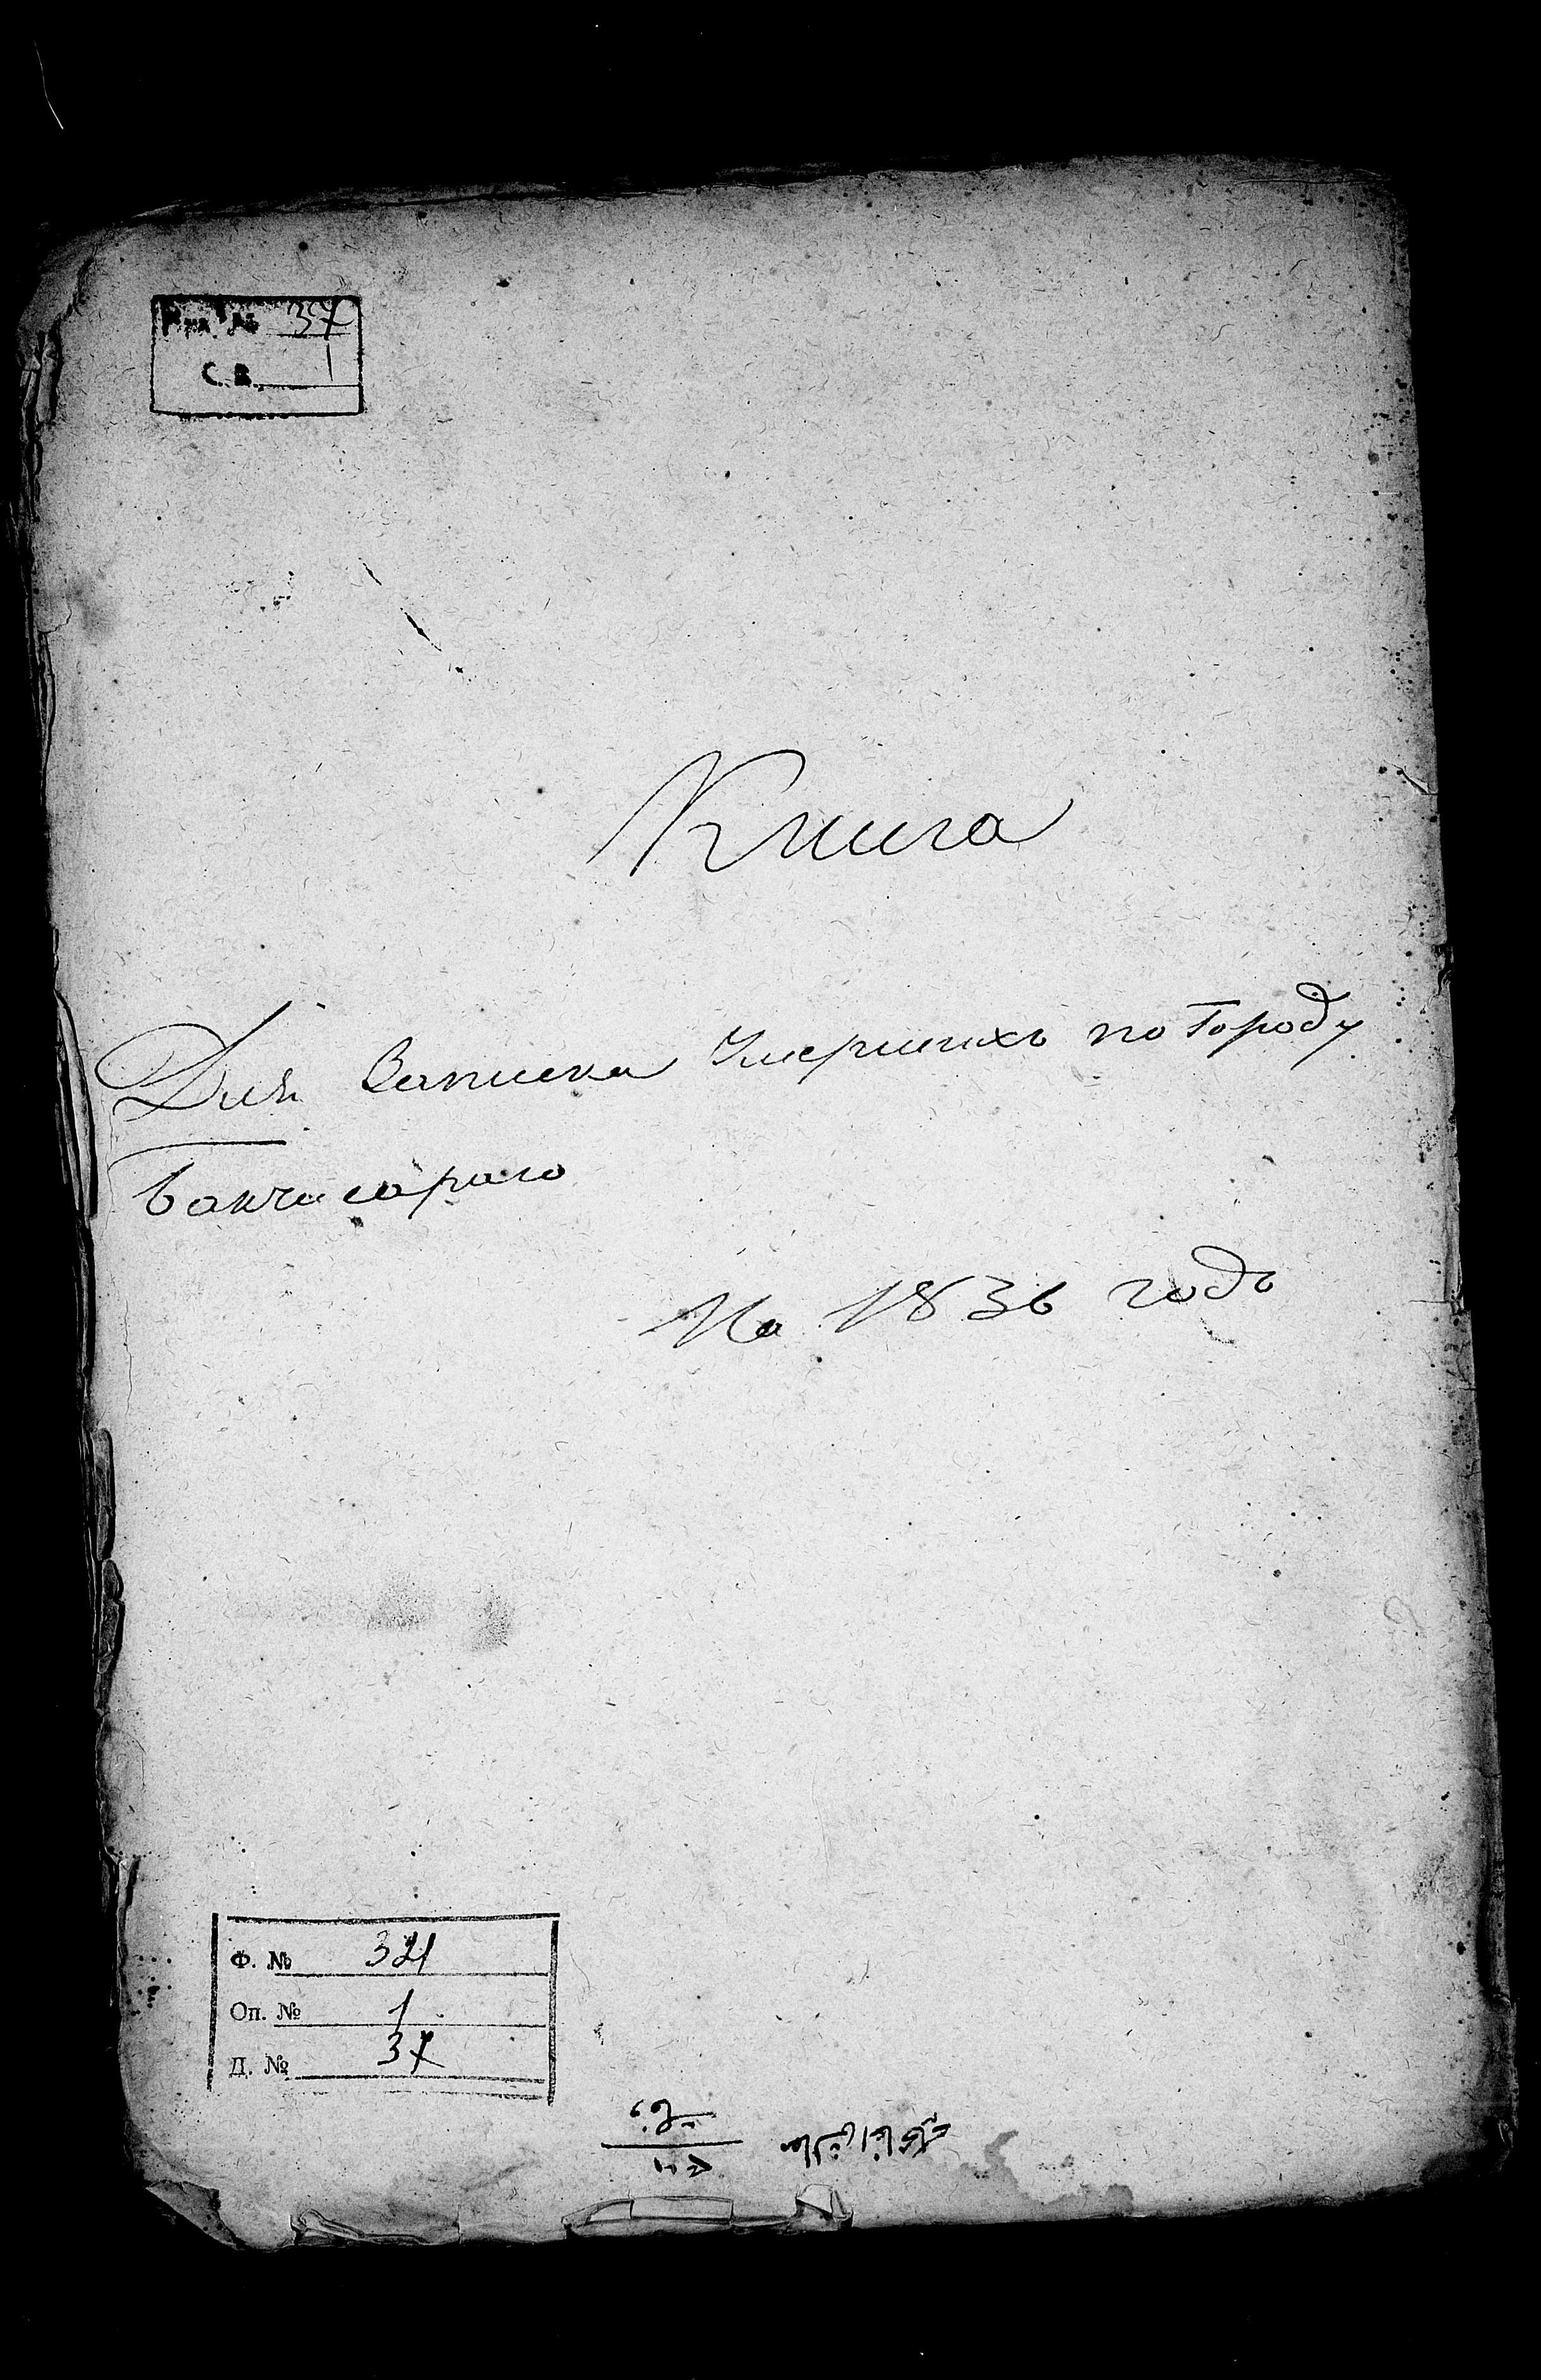 № 37
С. В. 1
Книга
Для Записки Умершихъ по Городу
Бакчисараю
На 1836 годъ
Ф. № 321
Оп. № 1
Д. № 37